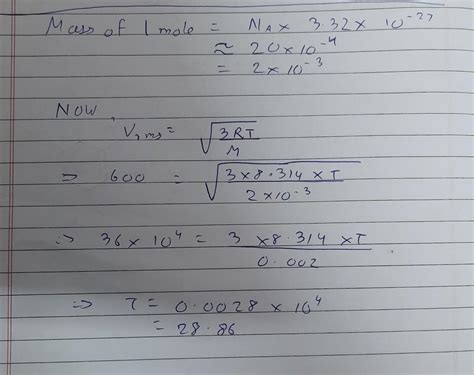 Mass of 1 mole = NA × 3.32 × 10⁻²⁷
≈ 20 × 10⁻⁴
= 2 × 10⁻³
Now,
Vrms = √(3RT/M)
⇒ 600 = √(3×8.314×T / 2×10⁻³)
⇒ 36 × 10⁴ = 3 × 8.314 × T / 0.002
⇒ T = 0.0028 × 10⁴
= 28.86